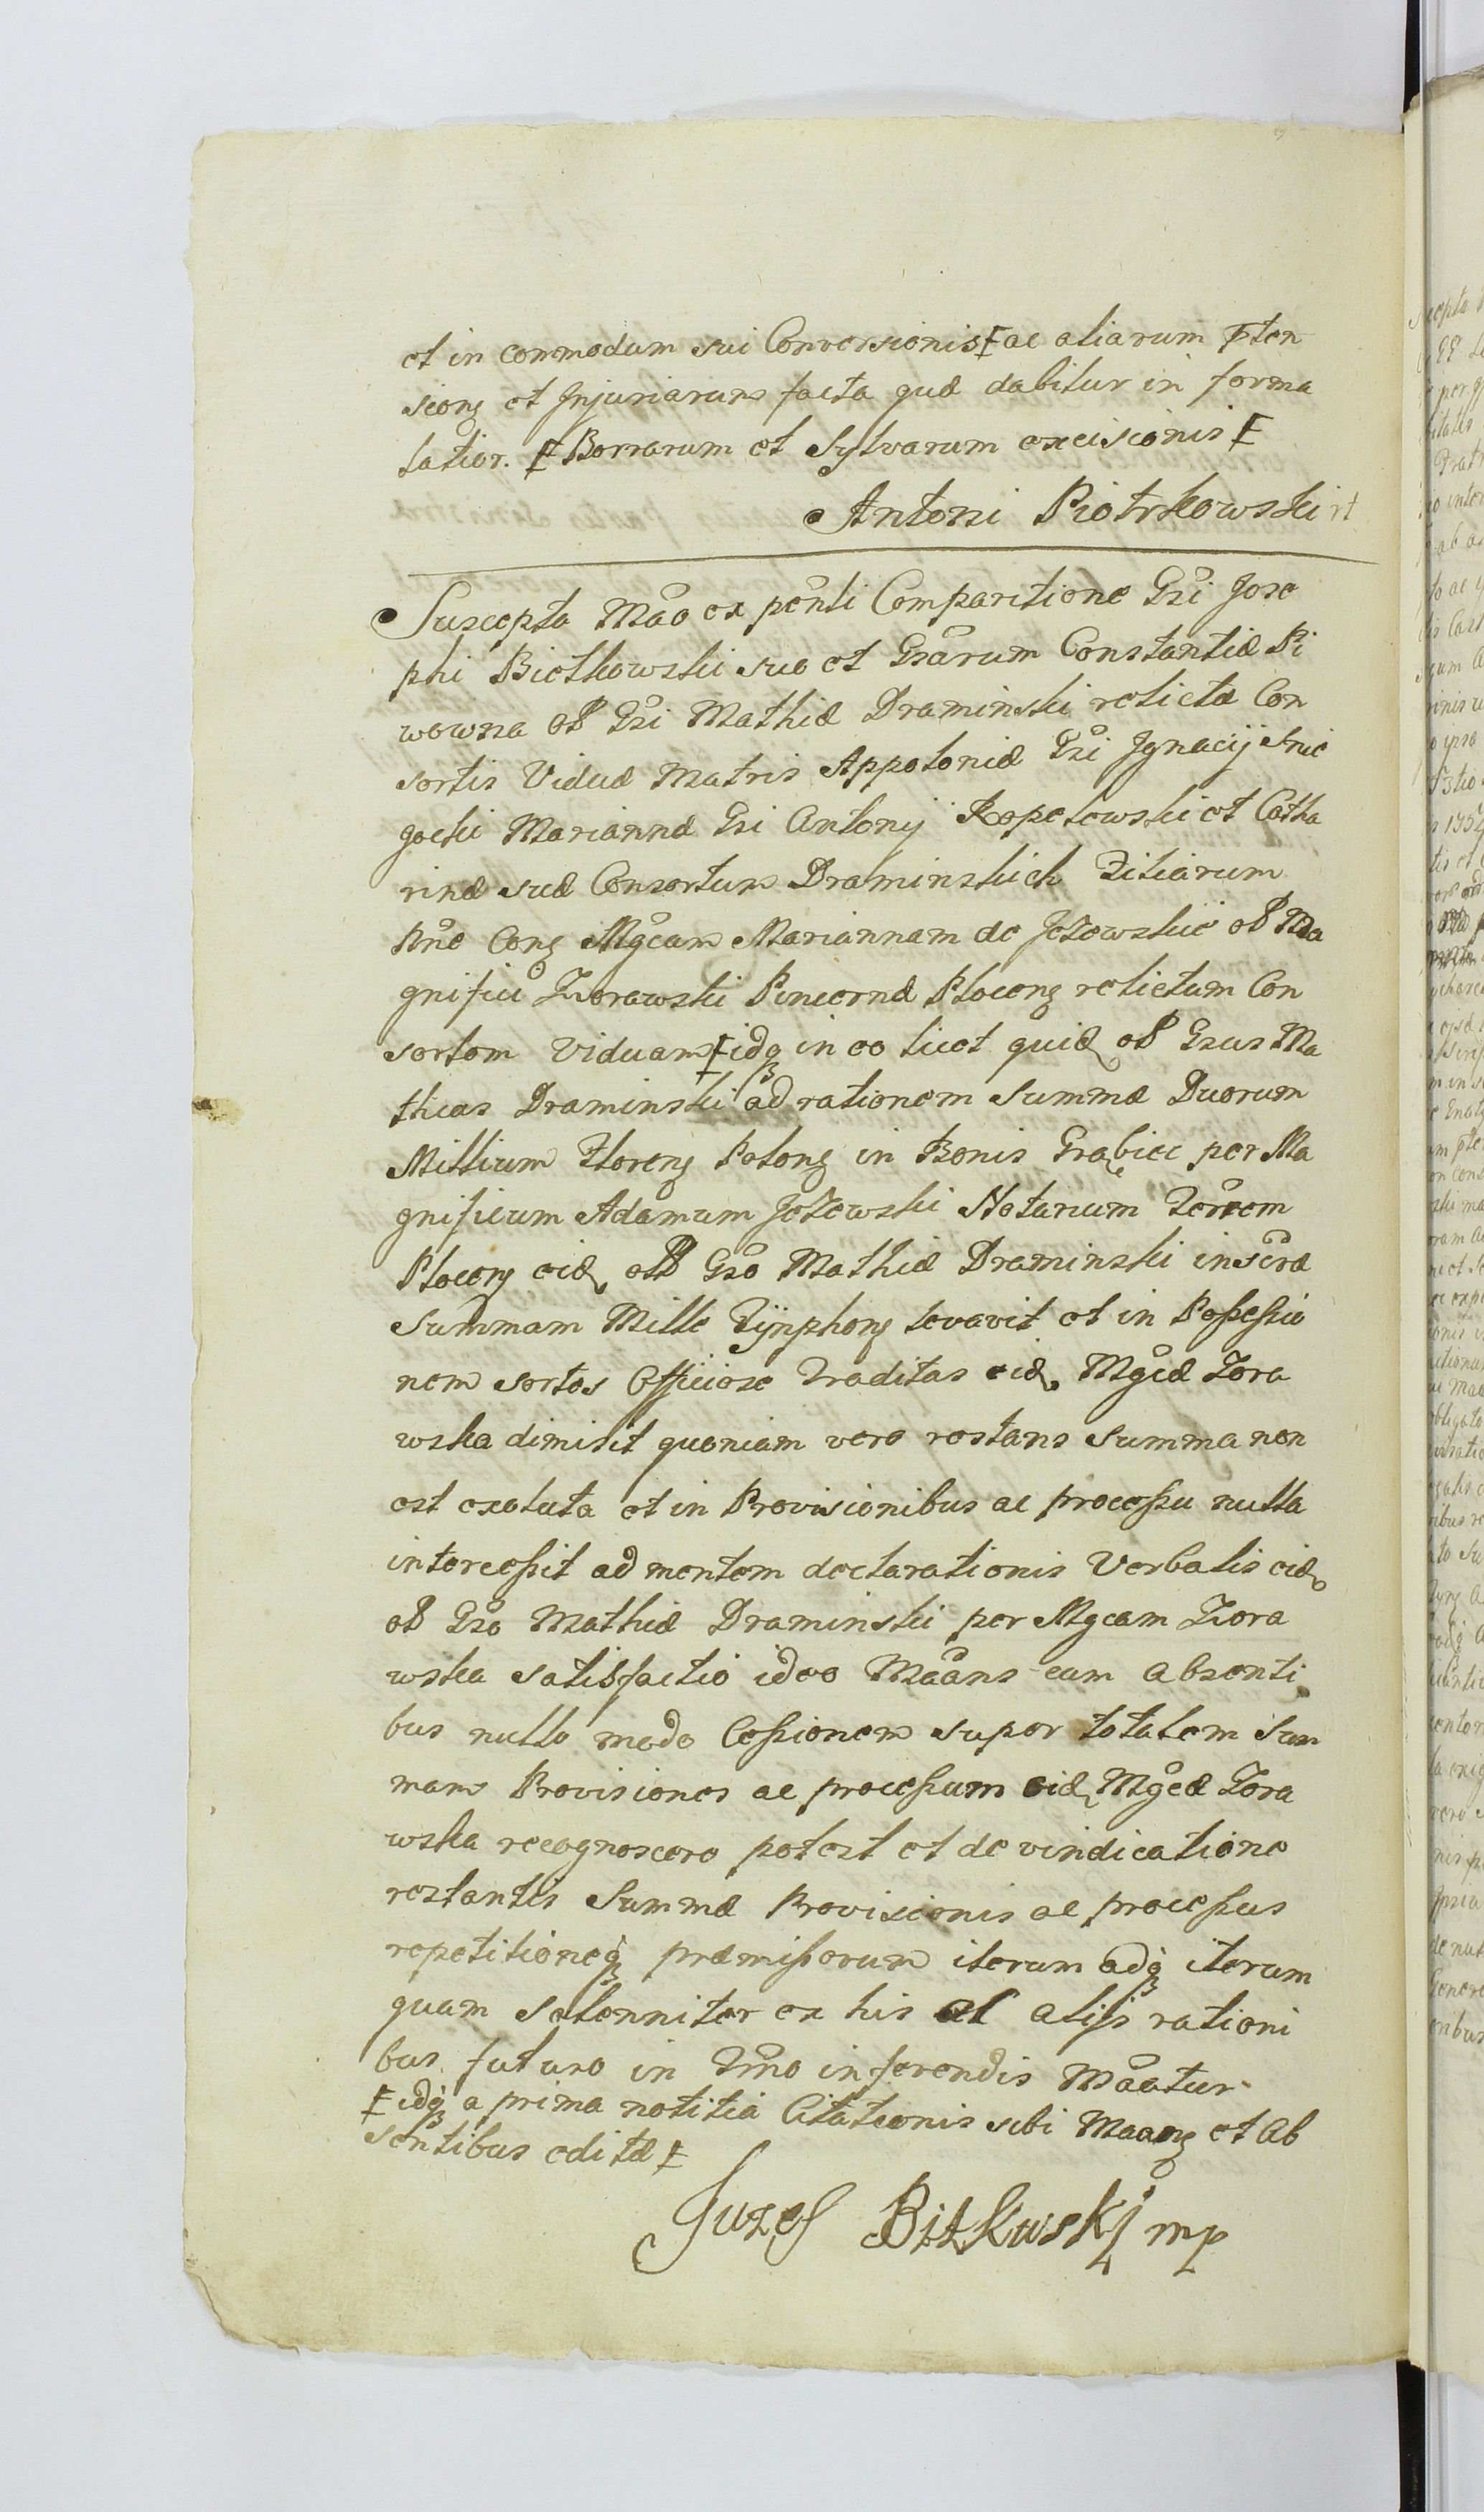 et in commodum sui Conversionis ac aliarum Pten
sionʒ et Injuriarum facta quæ dabitur in forma
latior. Borrarum et Sylvarum excisionis
Antoni Piotrkowski
Suscepta Mão ex pẽnti Comparitione Gsi Jose
phi Bietkowski suo et Gsãrum Constantiæ Pi
wowna oß Gsi Mathiæ Draminski relictæ Con
sortis Viduæ Matris Appoloniæ Gsi Ignacij Snie
gocki Mariannæ Gsi Antonij Kopetowski et Catha
rinæ suæ Consortum Draminskich Filiarum
Nñe Conʒ Mgcam Mariannam de Jeżewskie oß Ma
gnifici Żorawski Pincernæ Plocenʒ relictam Con
sortem Viduam idq in eo licet quidʒ oß Gsus Ma
thias Draminski ad rationem Summæ Duorum
Millium Florenʒ Polonʒ in Bonis Grabiec per Ma
gnificum Adamum Jeżewski Notarium Terrem
Plocenʒ eidʒ oß Gso Mathiæ Draminski inscræ
Summam Mille Tijnphonʒ levavit et in Poßeßio
nem sortes Officiose Traditas eidʒ Mgcæ Żora
wska dimisit quoniam vero restans Summa non
est exoluta et in Provisionibus ac proceßu nulla
interceßit ad mentem declarationis Verbalis eidʒ
oß Gso Mathiæ Draminski per Mgcam Żora
wska satisfactio ideo Maãns cum absenti
bus nullo modo Ceßionem super totalem Sum
mam Provisiones ac proceßum eidʒ Mgcæ Żora
wska recognoscere potest et de vindicatione
restantis Summæ Provisionis ac proceßus
repetitioneq præmißorum iterum adq iterum
quam solenniter ex his et alijs rationi
bus futuro in Tmño inferendis Maãtur
idq a prima notitia Citationis sibi Maanʒ et Ab
sentibus editæ
Juzef Bitkwskij mp